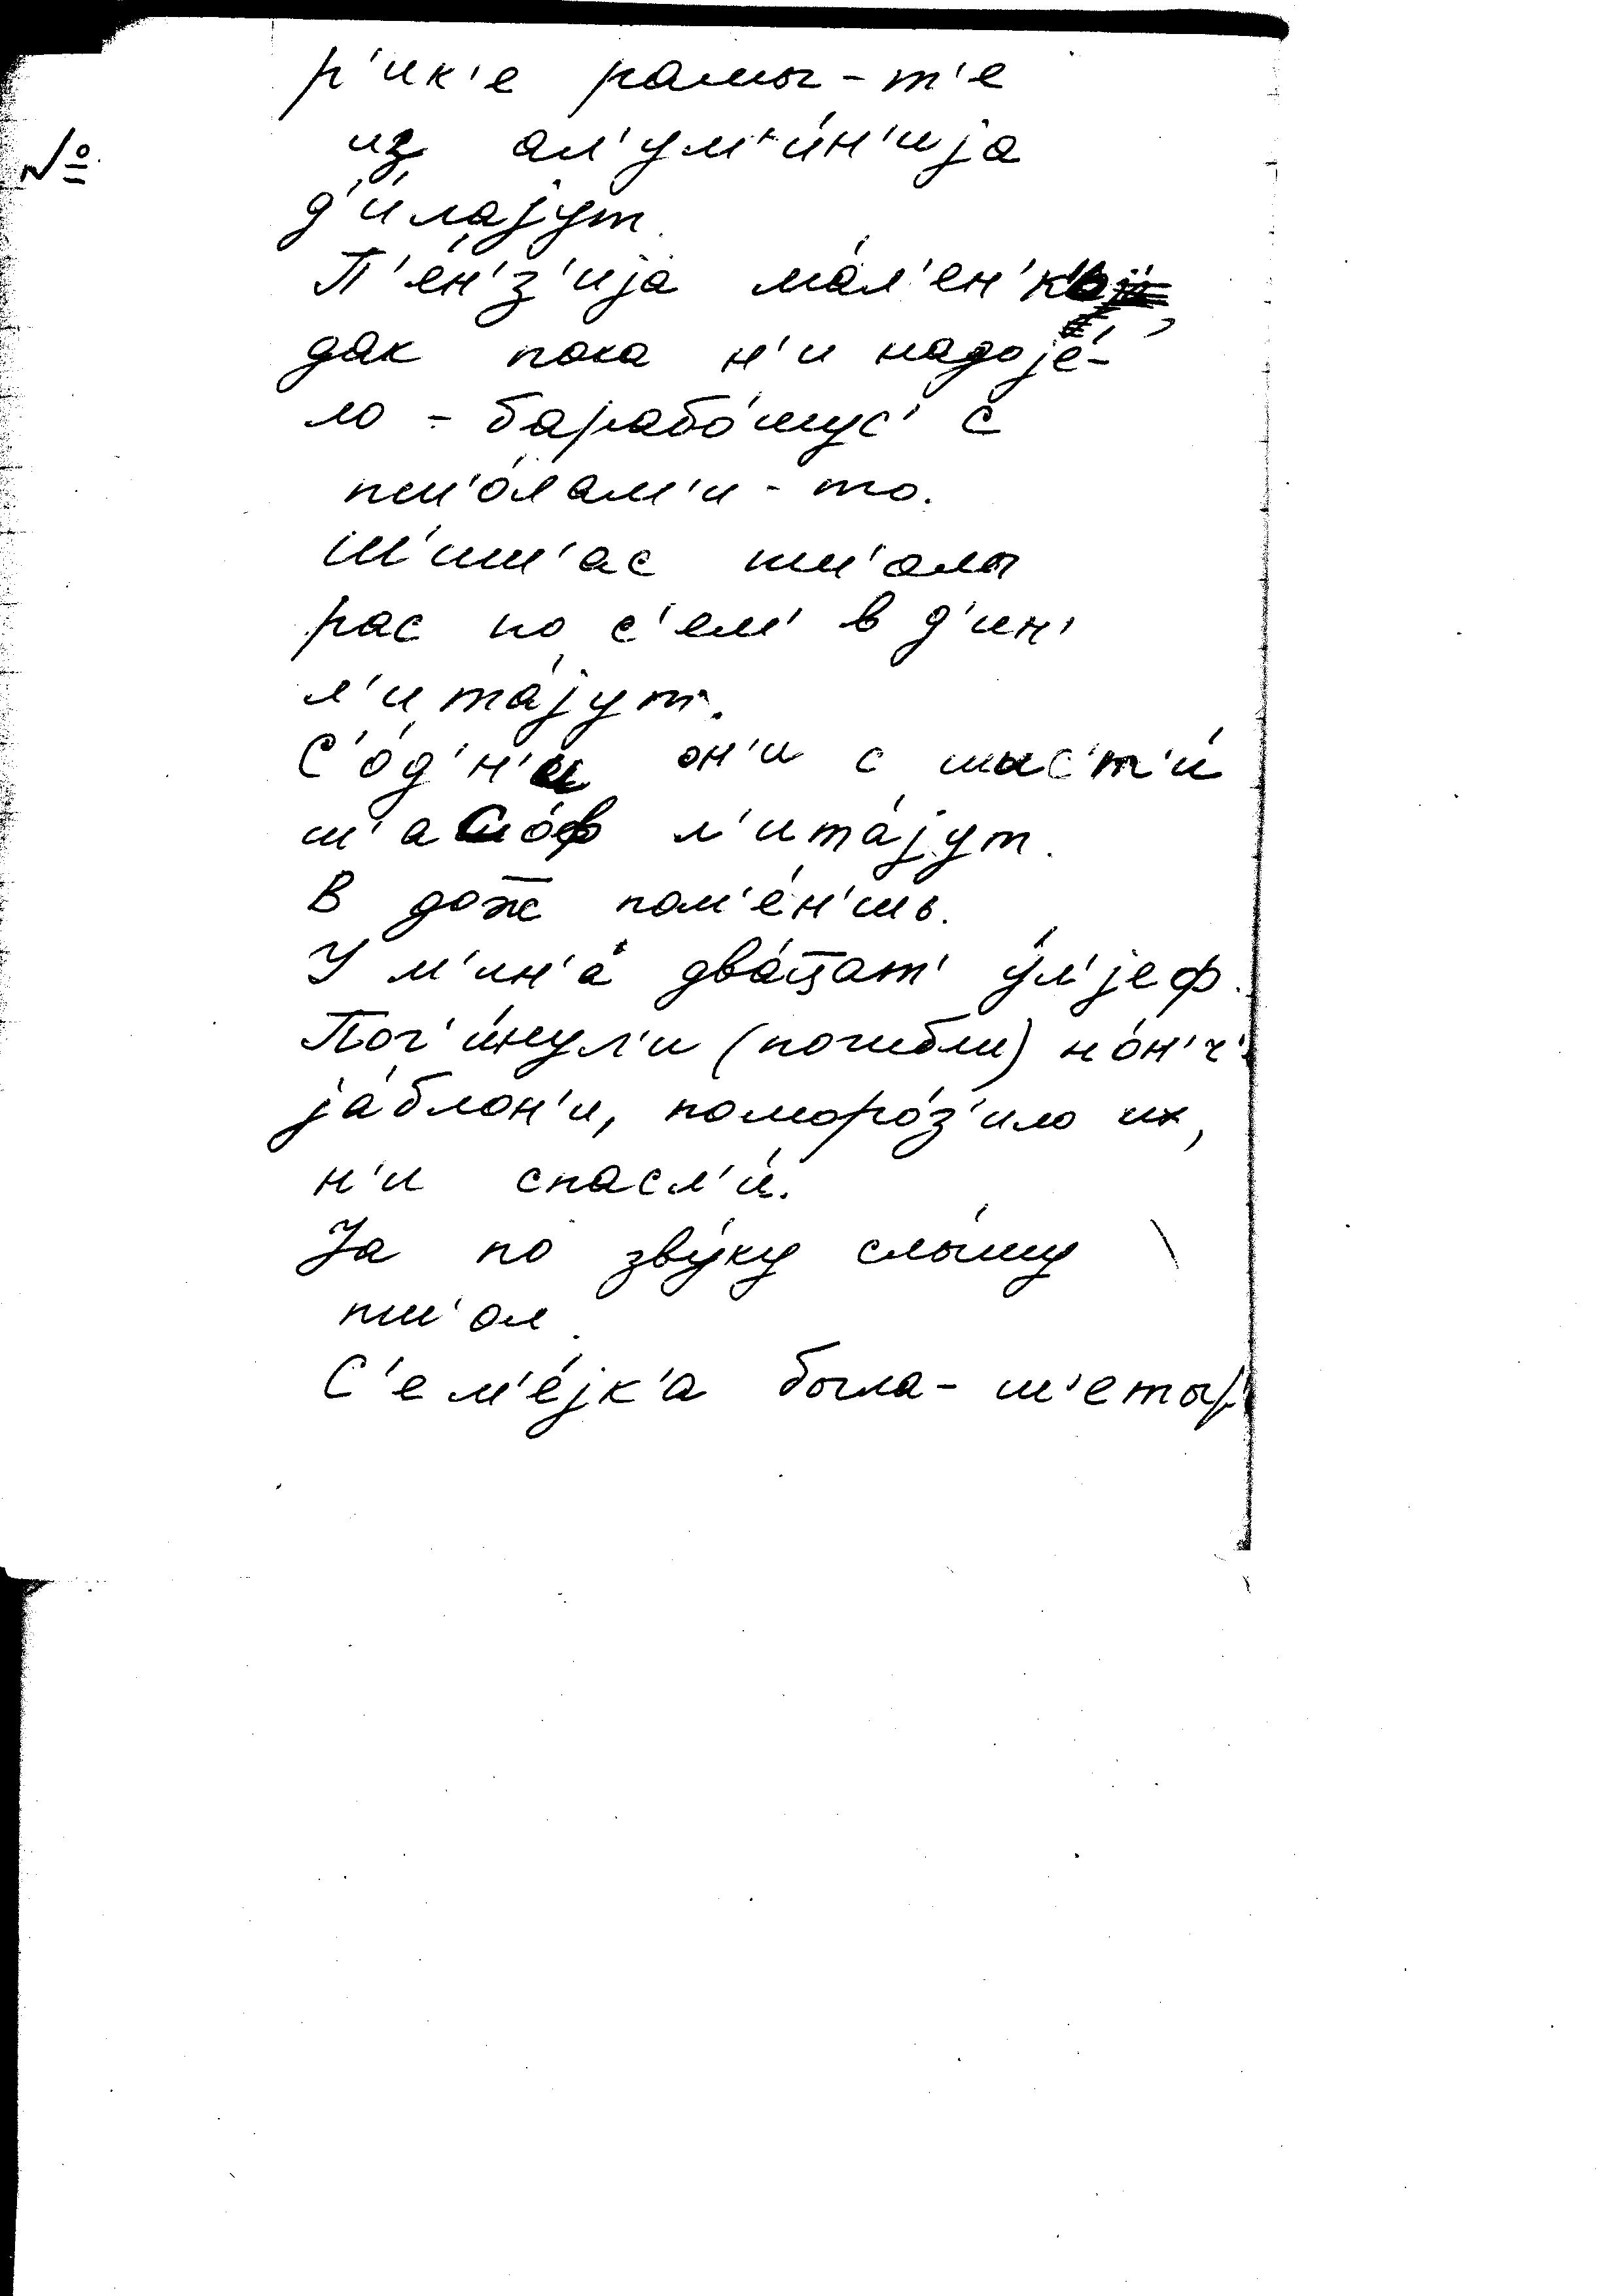 №
р'ик'е рамы - т'е
из ал'ум'и́н'ија
д'и́лајут.
П'е́н'з'ија ма́л'ен'к
дак пока н'и надоје́-
ло - барабо́шус' с
пш'о́лам'и - то.
Ш'иш'ас пш'олы
рас по с'ем' в д'ин'
л'ита́јут.
С'о́д'н'и он'и с шыс'т'и́
ш'асо́ф л'ита́јут.
В дож̅ пом'е́н'шь.
У м'ин'а́ два́ц̅ат' у́л'јеф.
Пог'и́нул'и (погибли) но́н'ч'
ја́блон'и, поморо́з'ило их,
н'и спасл'и́.
Ја по зву́ку слы́шу
пш'ол.
С'ем'е́јк'а была - ш'етыр